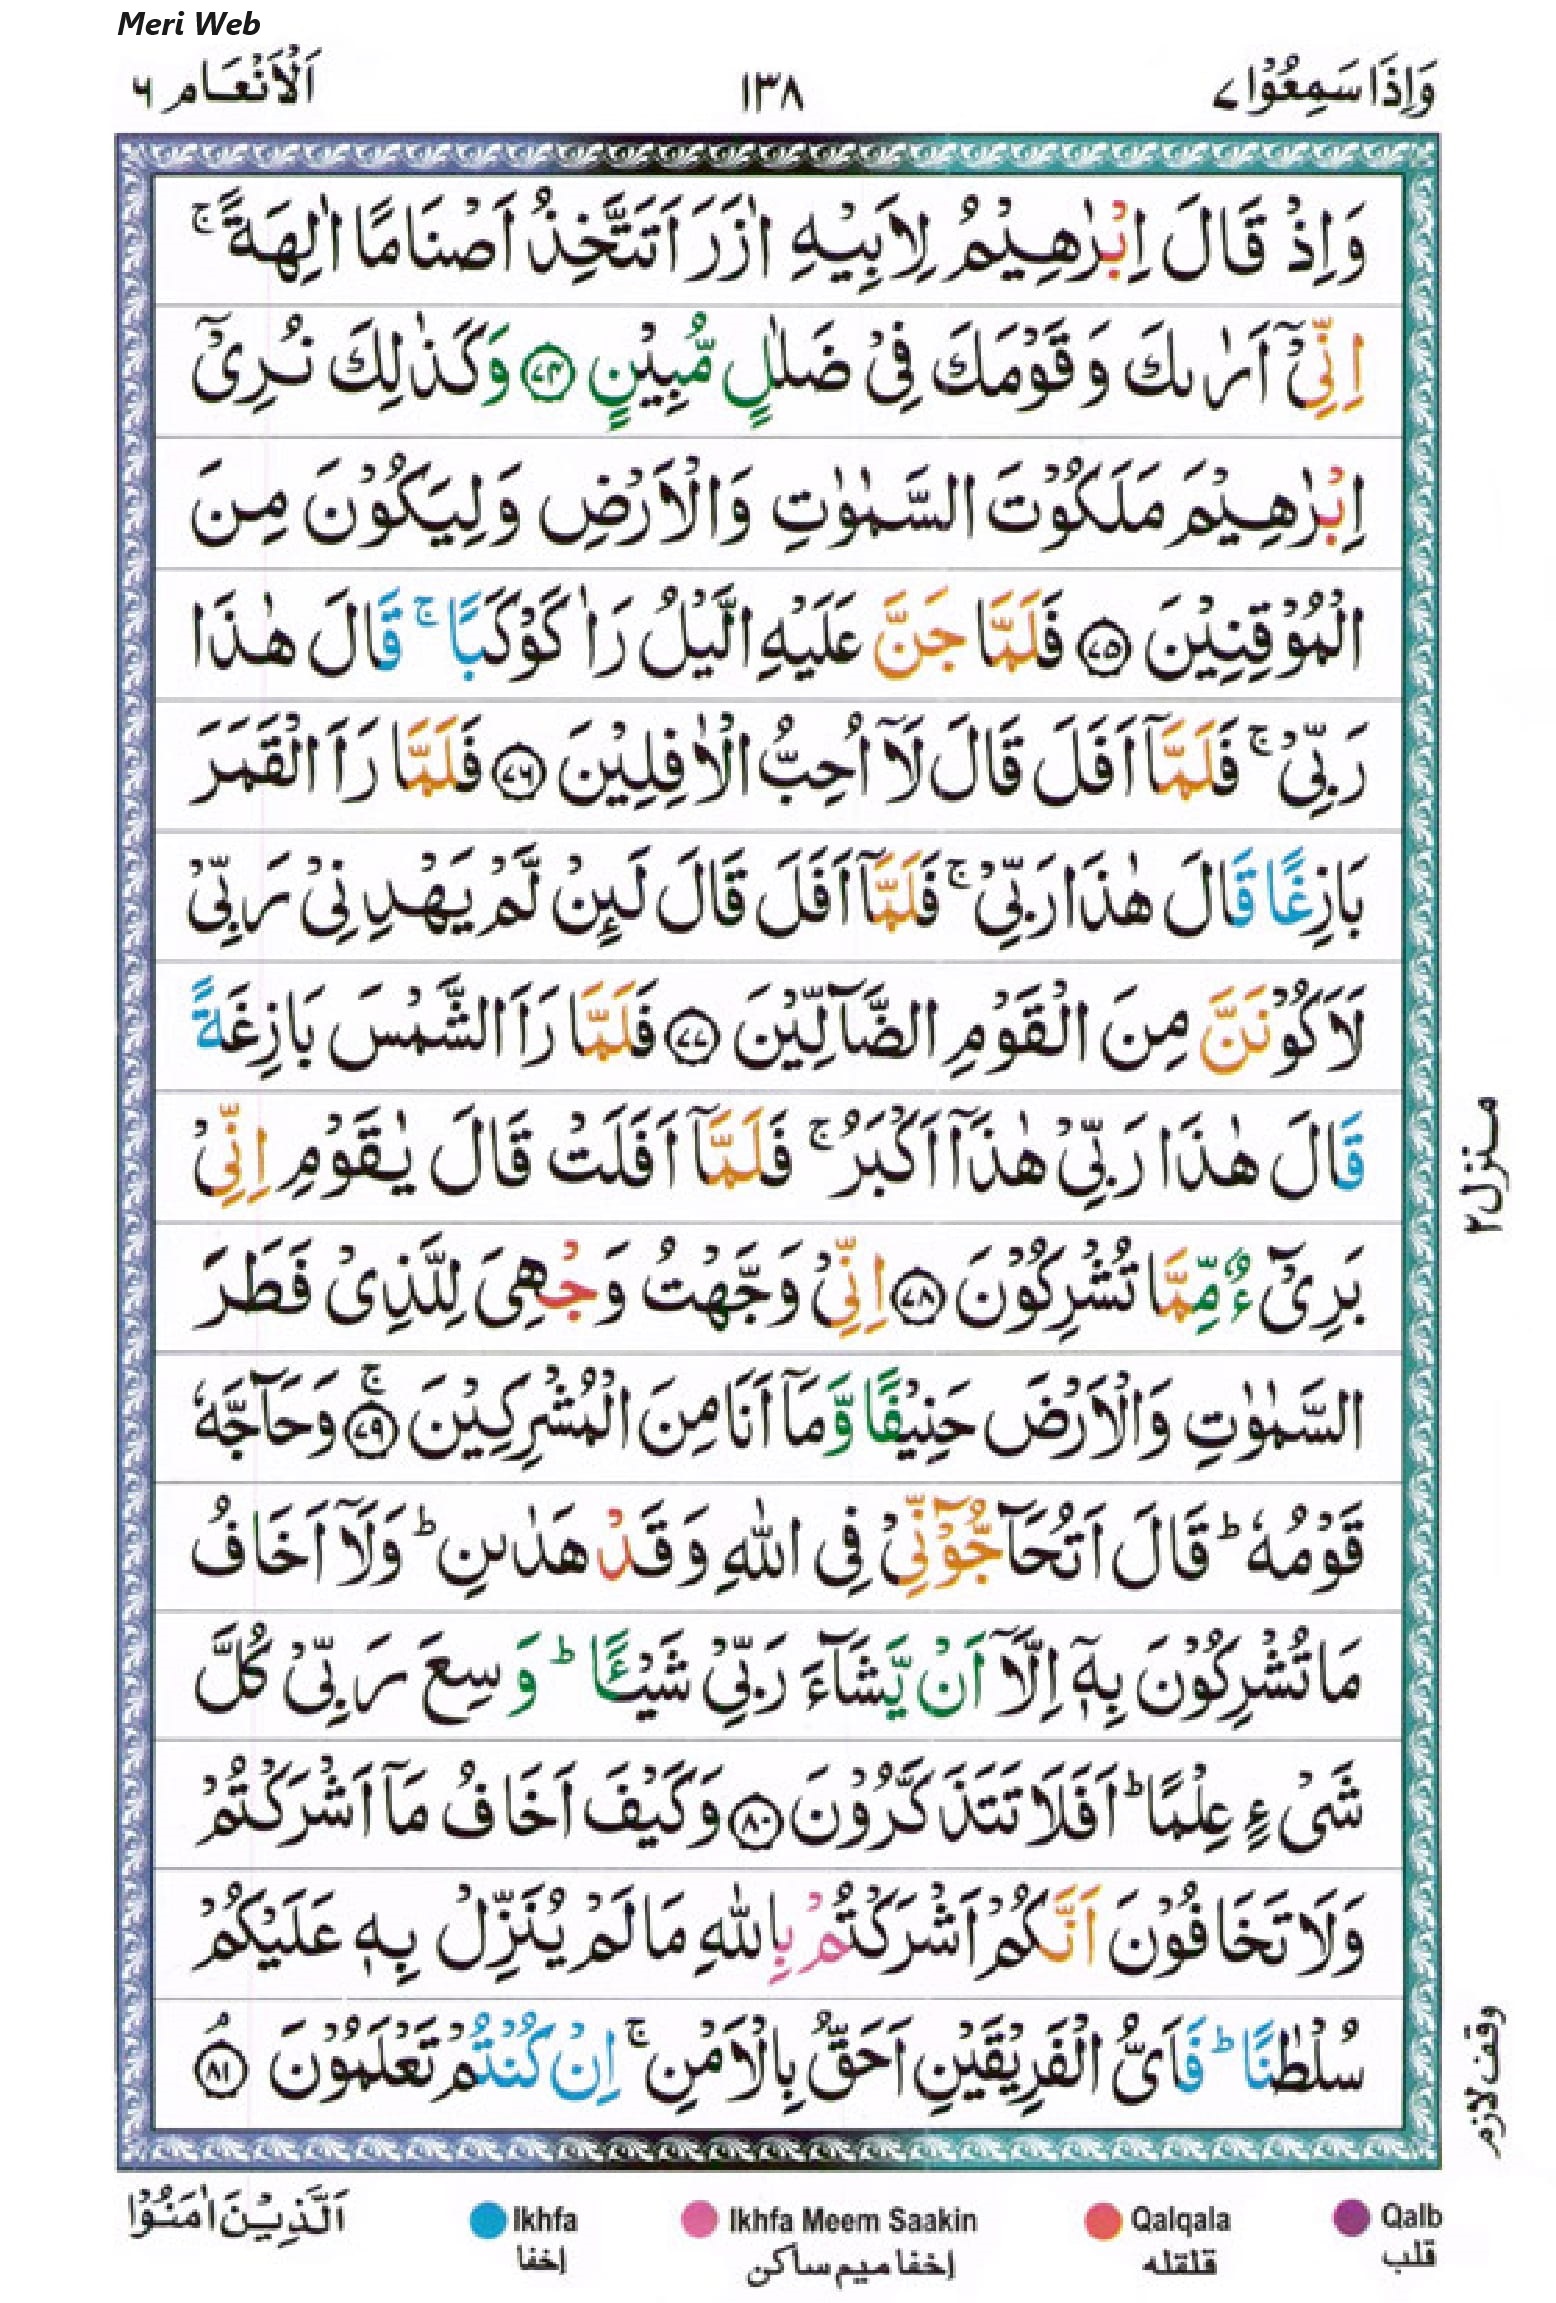 Meri Web
وَاِذَا سَمِعُوْا ٧
١٣٨
اَلْاَنْعَام ٦
وَاِذْ قَالَ اِبْرٰهِيْمُ لِاَبِيْهِ اٰزَرَ اَتَتَّخِذُ اَصْنَامًا اٰلِهَةً ۚ
اِنِّىْۤ اَرٰىكَ وَقَوْمَكَ فِىْ ضَلٰلٍ مُّبِيْنٍ ﴿٧٤﴾ وَكَذٰلِكَ نُرِىْۤ
اِبْرٰهِيْمَ مَلَكُوْتَ السَّمٰوٰتِ وَالْاَرْضِ وَلِيَكُوْنَ مِنَ
الْمُوْقِنِيْنَ ﴿٧٥﴾ فَلَمَّا جَنَّ عَلَيْهِ الَّيْلُ رَاٰ كَوْكَبًا ۚ قَالَ هٰذَا
رَبِّىْ ۚ فَلَمَّاۤ اَفَلَ قَالَ لَاۤ اُحِبُّ الْاٰفِلِيْنَ ﴿٧٦﴾ فَلَمَّا رَاَ الْقَمَرَ
بَازِغًا قَالَ هٰذَا رَبِّىْ ۚ فَلَمَّاۤ اَفَلَ قَالَ لَئِنْ لَّمْ يَهْدِنِىْ رَبِّىْ
لَاَكُوْنَنَّ مِنَ الْقَوْمِ الضَّآلِّيْنَ ﴿٧٧﴾ فَلَمَّا رَاَ الشَّمْسَ بَازِغَةً
قَالَ هٰذَا رَبِّىْ هٰذَاۤ اَكْبَرُ ۚ فَلَمَّاۤ اَفَلَتْ قَالَ يٰقَوْمِ اِنِّىْ
بَرِىْٓءٌ مِّمَّا تُشْرِكُوْنَ ﴿٧٨﴾ اِنِّىْ وَجَّهْتُ وَجْهِىَ لِلَّذِىْ فَطَرَ
السَّمٰوٰتِ وَالْاَرْضَ حَنِيْفًا وَّمَاۤ اَنَا مِنَ الْمُشْرِكِيْنَ ۚ﴿٧٩﴾ وَحَآجَّهٗ
قَوْمُهٗ ؕ قَالَ اَتُحَآجُّوْٓنِّىْ فِى اللّٰهِ وَقَدْ هَدٰىنِ ؕ وَلَاۤ اَخَافُ
مَا تُشْرِكُوْنَ بِهٖۤ اِلَّاۤ اَنْ يَّشَآءَ رَبِّىْ شَيْـًٔا ؕ وَسِعَ رَبِّىْ كُلَّ
شَىْءٍ عِلْمًا ؕ اَفَلَا تَتَذَكَّرُوْنَ ﴿٨٠﴾ وَكَيْفَ اَخَافُ مَاۤ اَشْرَكْتُمْ
وَلَا تَخَافُوْنَ اَنَّكُمْ اَشْرَكْتُمْ بِاللّٰهِ مَا لَمْ يُنَزِّلْ بِهٖ عَلَيْكُمْ
سُلْطٰنًا ؕ فَاَىُّ الْفَرِيْقَيْنِ اَحَقُّ بِالْاَمْنِ ۚ اِنْ كُنْتُمْ تَعْلَمُوْنَ ۘ﴿٨١﴾
منزل ٢
وقف لازم
اَلَّذِيْنَ اٰمَنُوْا
Ikhfa
إخفا
Ikhfa Meem Saakin
إخفا ميم ساكن
Qalqala
قلقله
Qalb
قلب